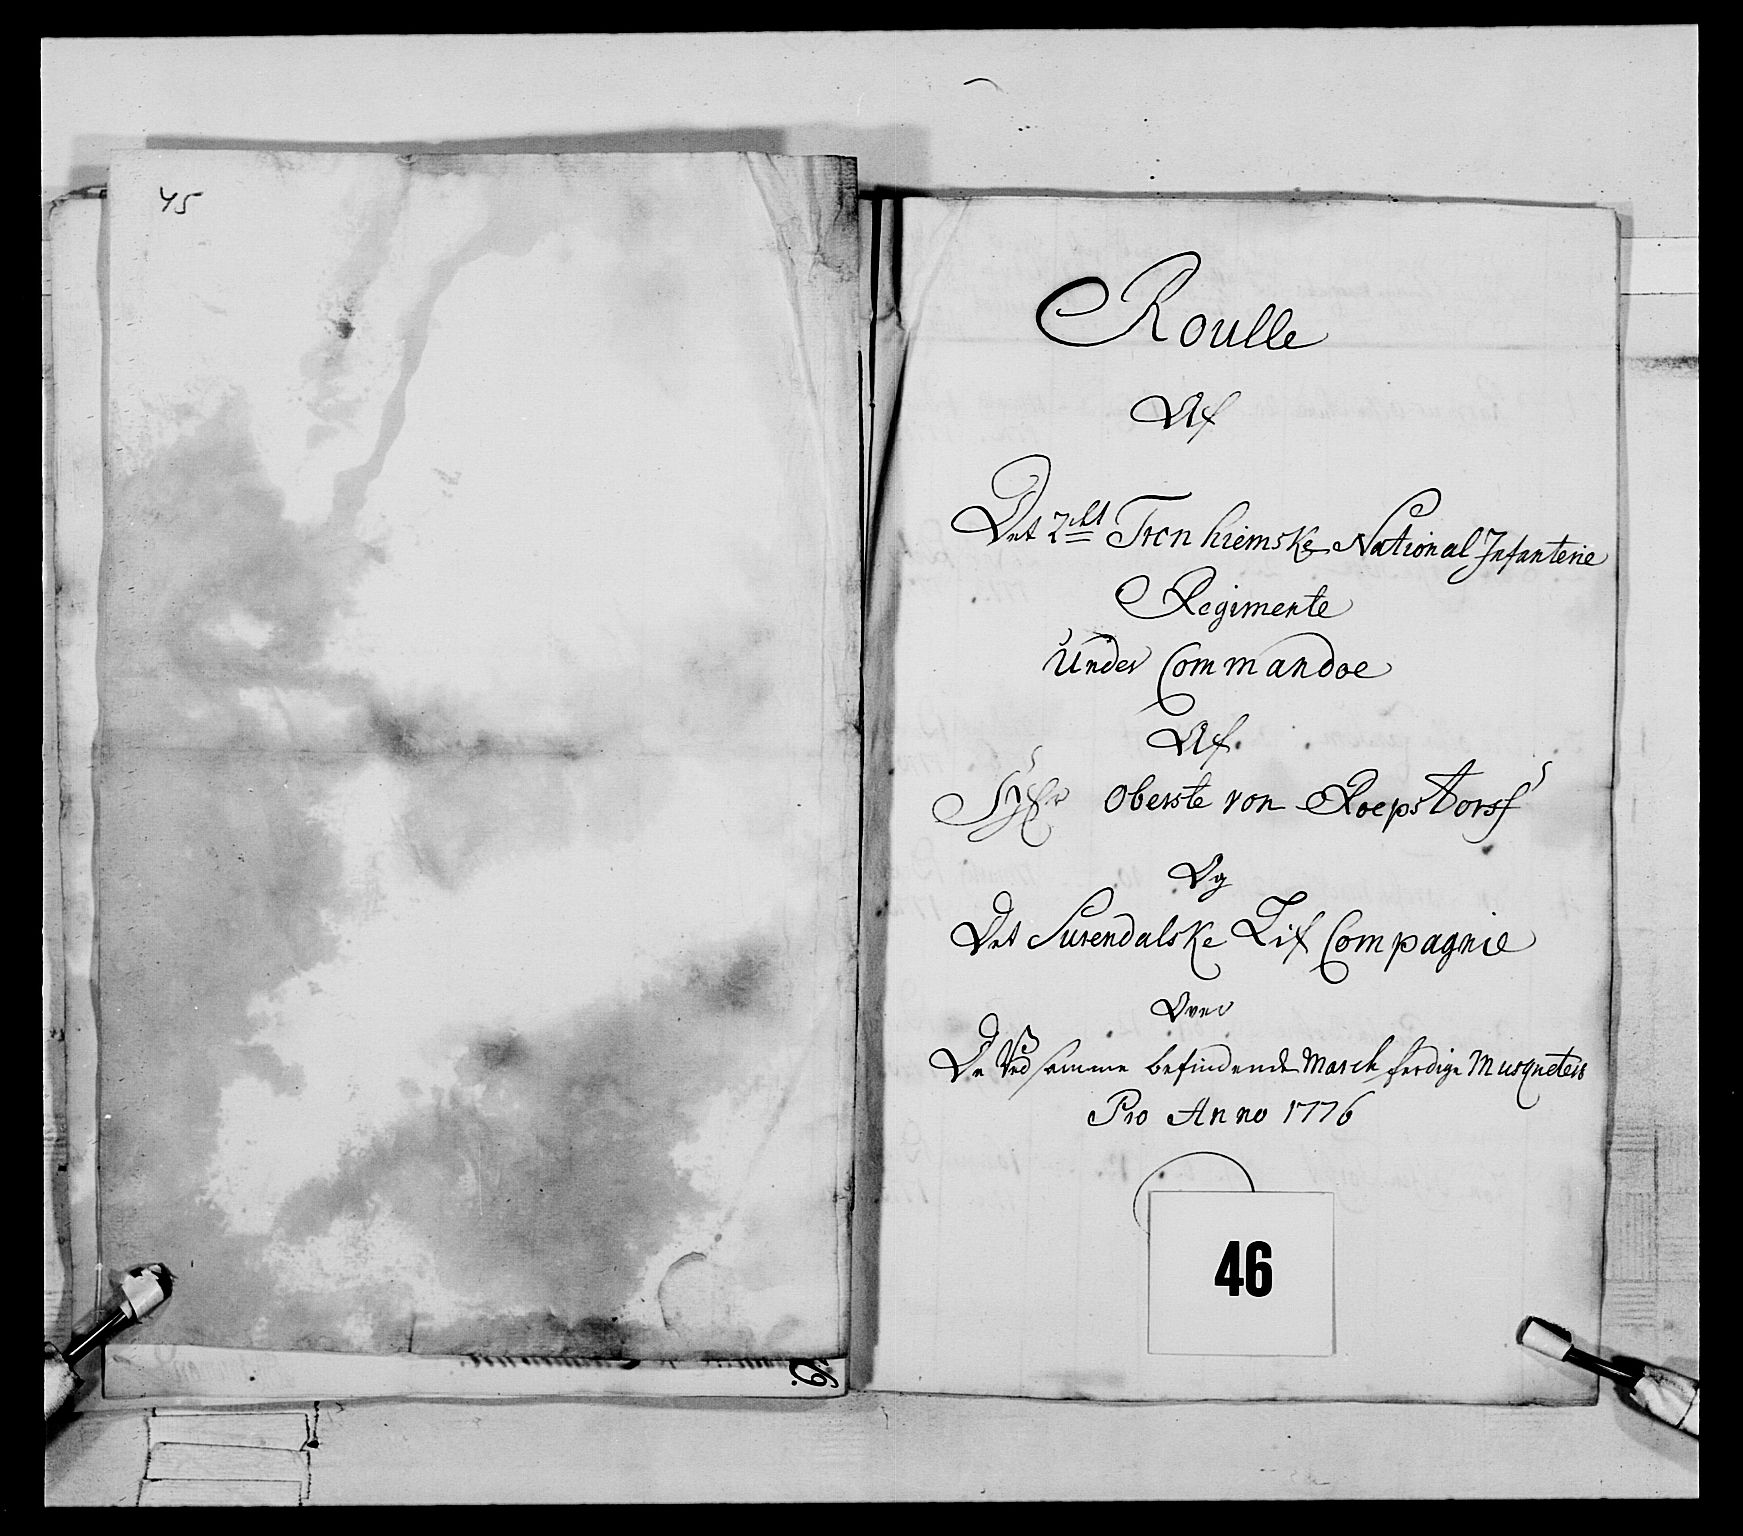 45
Roulle
Af
Det 2det Tronhiemske National Infanterie
Regimente
Under Commandoe
Af
Oberste von Roepstorff
Og
Det Surendalske Lif Compagnie
Over
De Ved samme befindende March ferdige Musqueters
Pro Anno 1776
46